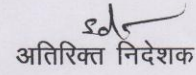 sd-
अतिरिक्त निदेशक